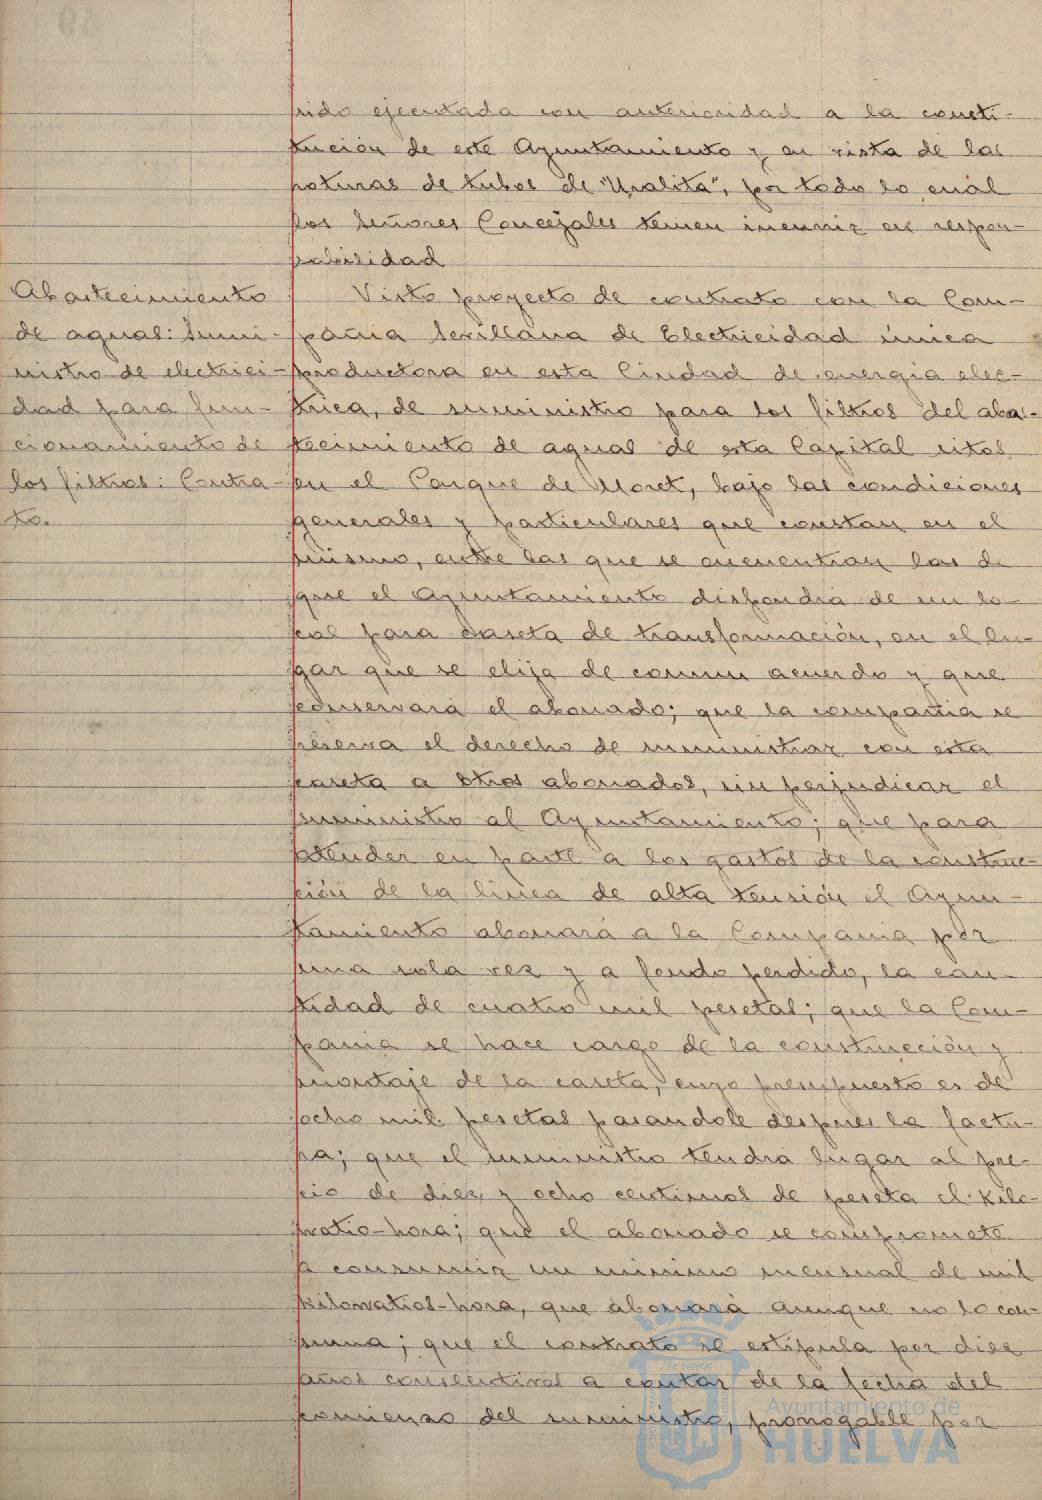 sido ejecutada con anterioridad a la consti-
tución de este Ayuntamiento y en vista de las
roturas de tubos de "Uralita", por todo lo cual
los Señores Concejales temen incurrir en respon-
sabilidad
Abastecimiento
de aguas: Sumi-
nistro de electrici-
dad para fun-
cionamiento de
los filtros: Contra-
to.
Visto proyecto de contrato con la Com-
pañia Sevillana de Electricidad única
productora en esta Ciudad de energia elec-
trica, de suministro para los filtros del abas-
tecimiento de aguas de esta Capital sitos
en el Parque de Moret, bajo las condiciones
generales y particulares que constan en el
mismo, entre las que se encuentran las de
que el Ayuntamiento dispondrá de un lo-
cal para caseta de transformación, en el lu-
gar que se elija de comun acuerdo y que
conservará el abonado; que la compañia se
reserva el derecho de suministrar con esta
caseta a otros abonados, sin perjudicar el
suministro al Ayuntamiento; que para
atender en parte a los gastos de la construc-
ción de la linea de alta tensión el Ayun-
tamiento abonará a la Compania por
una sola vez y a fondo perdido, la can-
tidad de cuatro mil pesetas; que la Com-
pania se hace cargo de la construcción y
montaje de la caseta, cuyo presupuesto es de
ocho mil pesetas pasandole despues la factu-
ra; que el suministro tendra lugar al pre-
cio de diez y ocho centimos de peseta el kilo-
watio-hora; que el abonado se compromete
a consumir un minimo mensual de mil
kilowatios-hora, que abonará aunque no lo con-
suma; que el contrato se estipula por diez
años consecutivos a contar de la fecha del
comienzo del suministro, prorrogable por
Ayuntamiento de
HUELVA